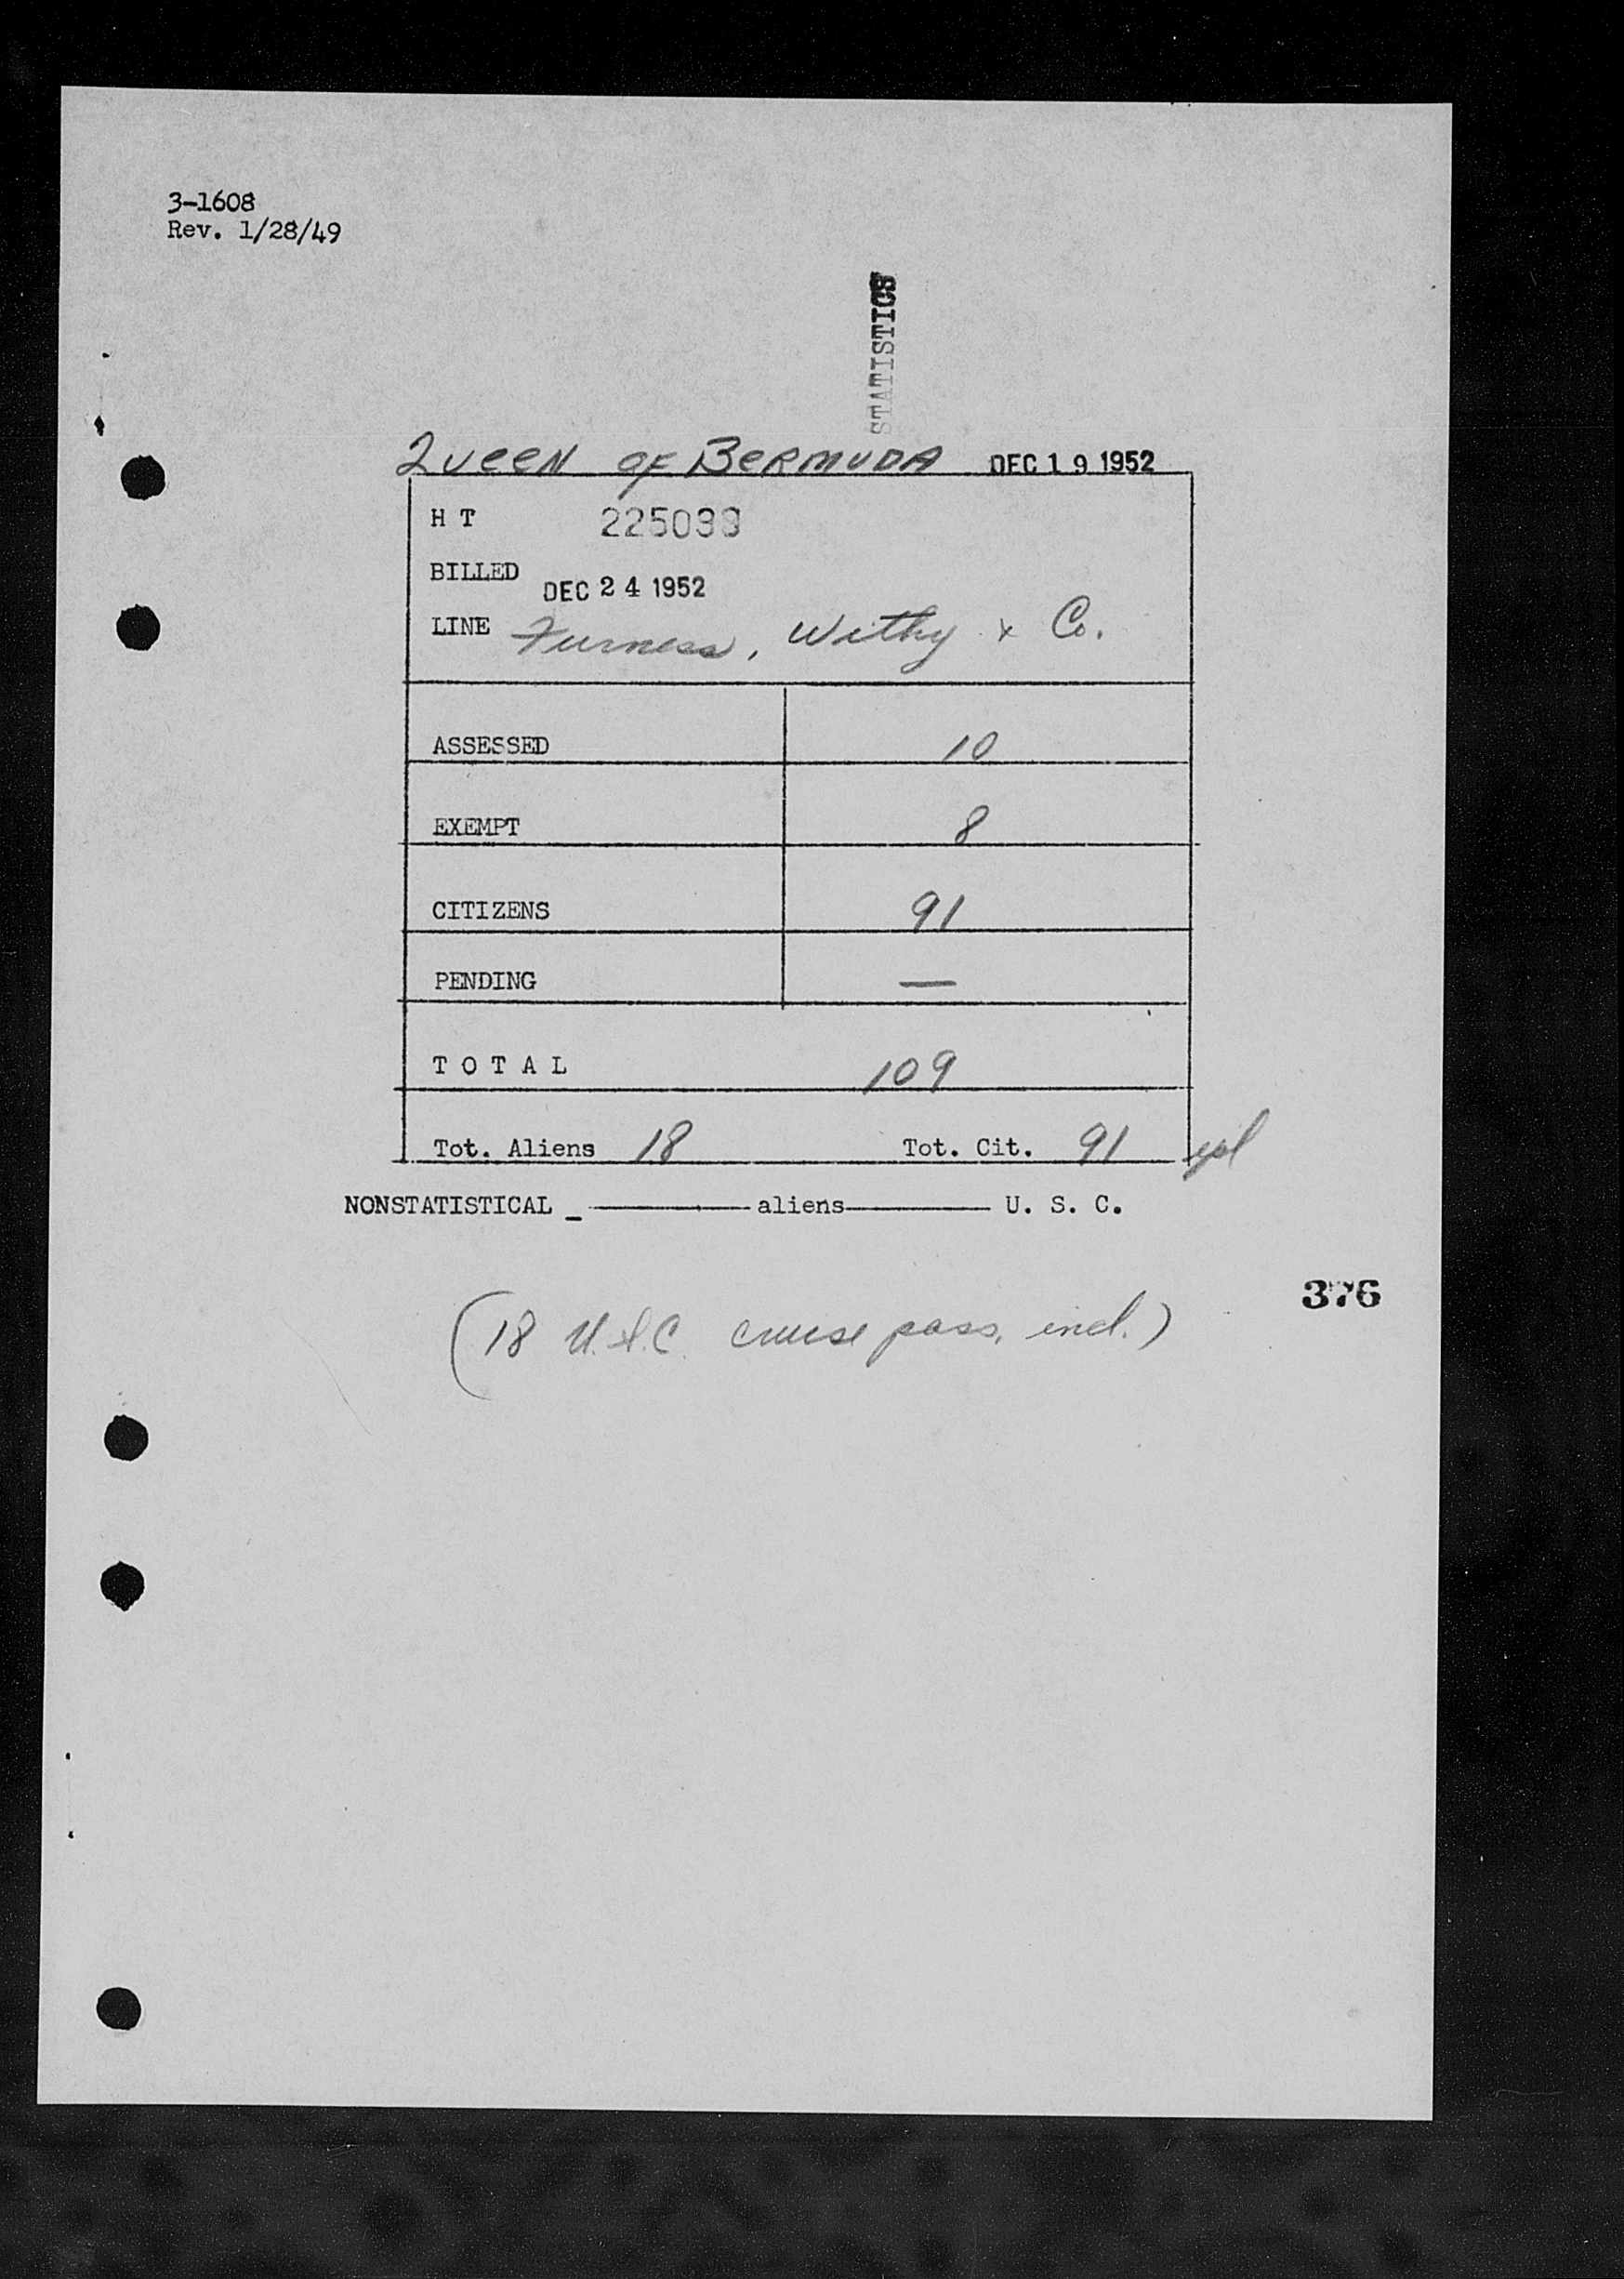 3-1608
Rev. 1/28/49
STATISTICS
QUEEN OF BERMUDA DEC 19 1952
H T
BILLED DEC 24 1952
LINE Furness, Withy & Co.
ASSESSED 10
EXEMPT 8
CITIZENS 91
PENDING —
T O T A L 109
Tot. Aliens 18 Tot. Cit. 91
NONSTATISTICAL _ ——— aliens ——— U. S. C.
376
(18 U.S.C. cruise pass. incl.)